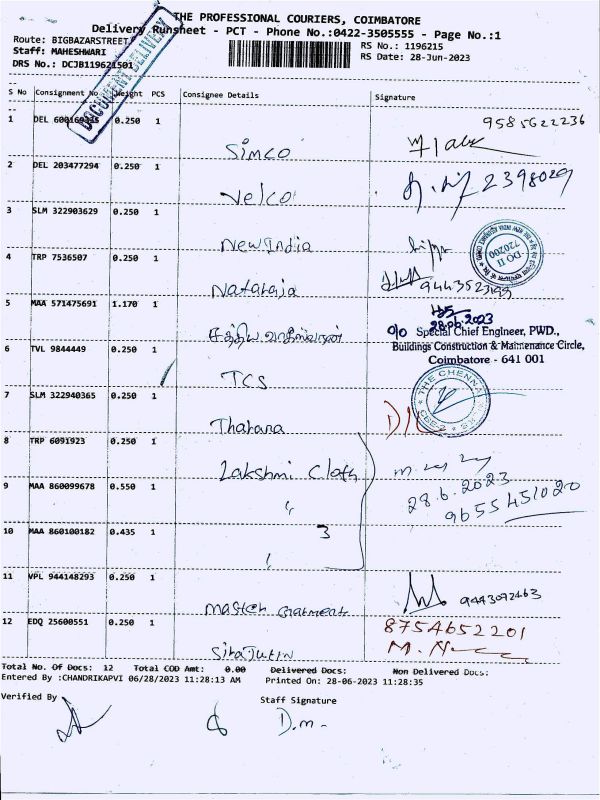 THE PROFESSIONAL COURIERS, COIMBATORE
Delivery Runsheet - PCT - Phone No.:0422-3505555 - Page No.:1
Route: BIGBAZARSTREET
RS No.: 1196215
Staff: MAHESHWARI
RS Date: 28-Jun-2023
DRS No.: DCJB119621501
DOCUMENT DELIVERY
S No Consignment No Weight PCS Consignee Details Signature
1 DEL 0.250 1 Simco 9585622236
2 DEL 203477294 0.250 1 Velco 2398029
3 SLM 322903629 0.250 1 New India
DO II 720200
4 TRP 7536507 0.250 1 Nataraja
5 MAA 571475691 1.170 1
28.06.2023
O/o Special Chief Engineer, PWD.,
Buildings Construction & Maintenance Circle,
Coimbatore - 641 001
6 TVL 9844449 0.250 1 TCS
THE CHENNAI
CBE-2
7 SLM 322940365 0.250 1 Tharana
8 TRP 6091923 0.250 1 Lakshmi Cloth
28.6.2023
9 MAA 860099678 0.550 1 "
9655451020
10 MAA 860100182 0.435 1 3
11 VPL 944148293 0.250 1 Master 9443092463
12 EDQ 25600551 0.250 1 Sirajutin 8754652201
Total No. Of Docs: 12 Total COD Amt: 0.00 Delivered Docs: Non Delivered Docs:
Entered By :CHANDRIKAPVI 06/28/2023 11:28:13 AM Printed On: 28-06-2023 11:28:35
Verified By Staff Signature
D.m.